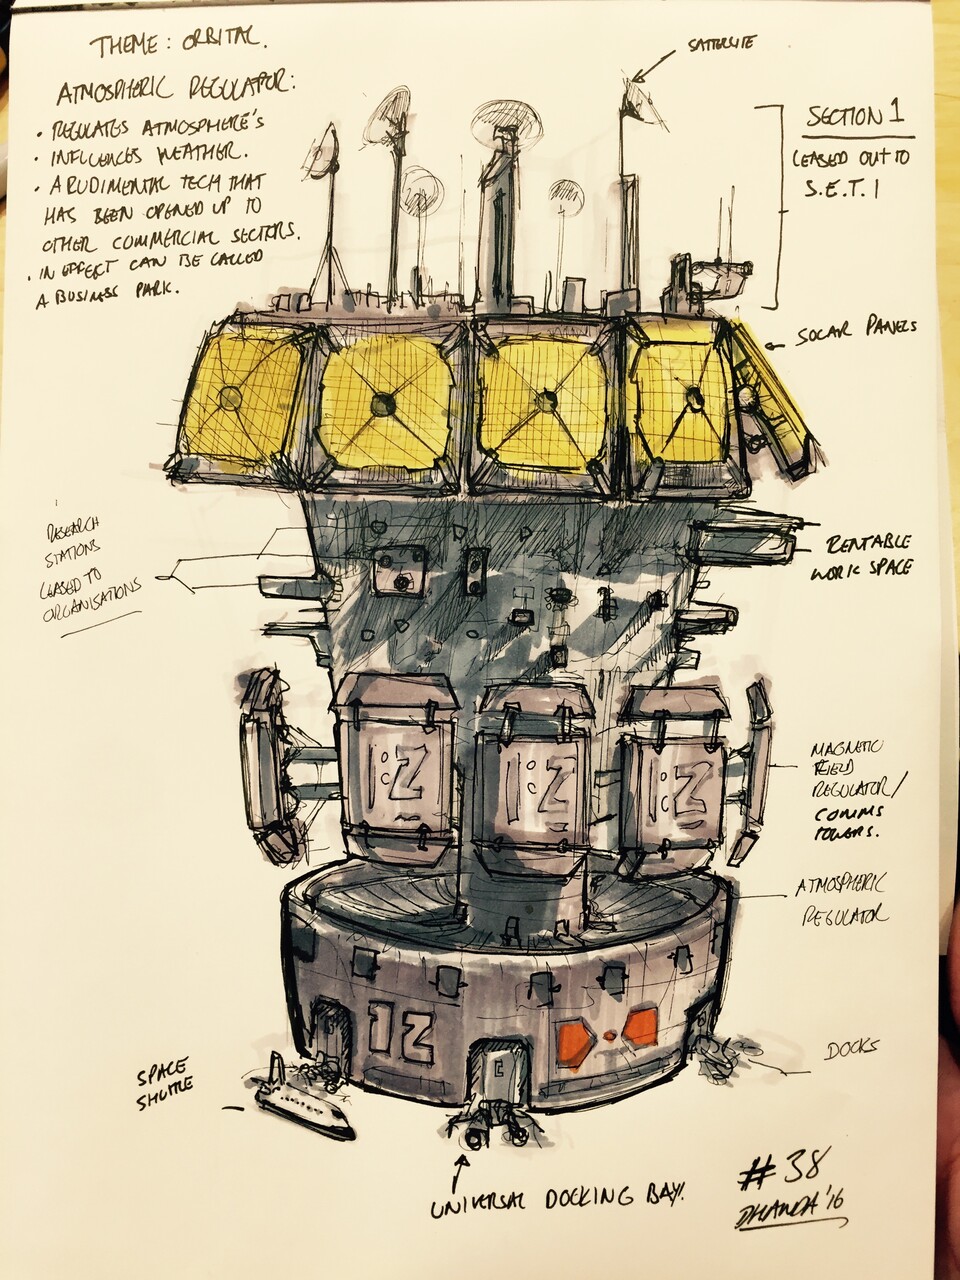 THEME: ORBITAL.
ATMOSPHERIC REGULATOR:
• REGULATES ATMOSPHERE'S
• INFLUENCES WEATHER.
• A RUDIMENTAL TECH THAT
HAS BEEN OPENED UP TO
OTHER COMMERCIAL SECTORS.
• IN EFFECT CAN BE CALLED
A BUSINESS PARK.
SATTELITE
SECTION 1
LEASED OUT TO
S.E.T.I
SOLAR PANELS
RESEARCH
STATIONS
LEASED TO
ORGANISATIONS
RENTABLE
WORK SPACE
MAGNETIC
FIELD
REGULATOR/
COMMS
TOWERS.
|:Z
|:Z
|:Z
ATMOSPHERIC
REGULATOR
12
DOCKS
SPACE
SHUTTLE
UNIVERSAL DOCKING BAY.
#38
DHANDA '16